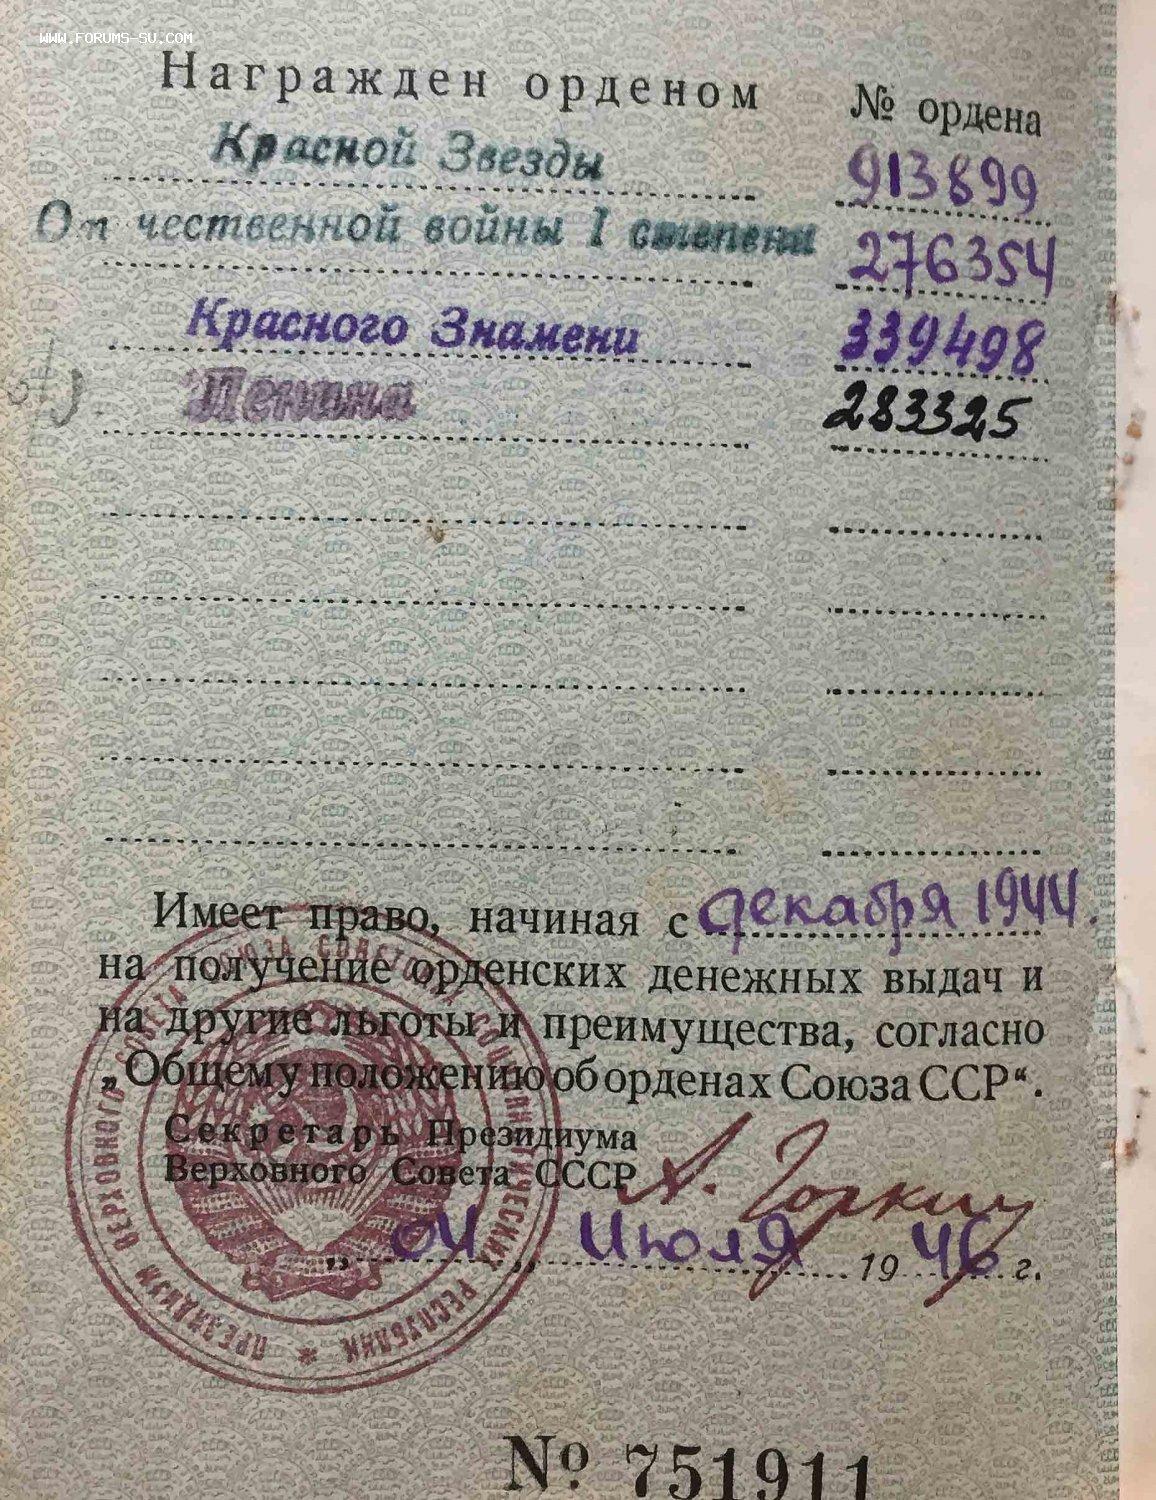 WWW.FORUMS-SU.COM
Награжден орденом № ордена
Красной Звезды 913899
От чественной войны I степени 276354
Красного Знамени 339498
Ленина 283325
Имеет право, начиная с декабря 1944.
на получение орденских денежных выдач и
на другие льготы и преимущества, согласно
„Общему положению об орденах Союза ССР“.
Секретарь Президиума
Верховного Совета СССР А. Горкин
„04 „ Июля 1946 г.
ПРЕЗИДИУМ ВЕРХОВНОГО СОВЕТА СОЮЗА СОВЕТСКИХ СОЦИАЛИСТИЧЕСКИХ РЕСПУБЛИК *
№ 751911